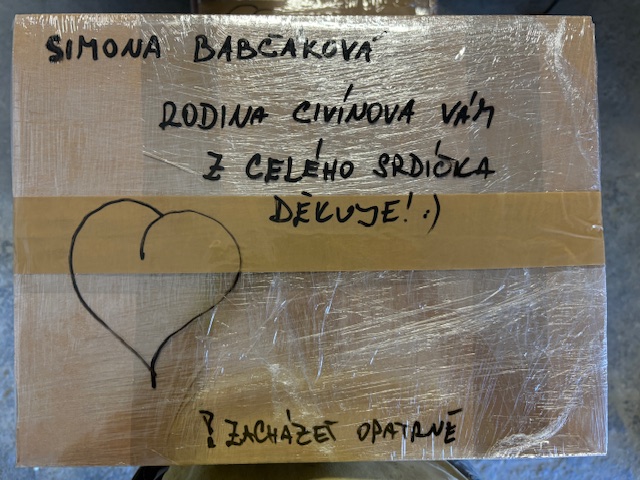 SIMONA BABČÁKOVÁ
RODINA CIVÍNOVA VÁM
Z CELÉHO SRDÍČKA
DĚKUJE! :)
! ZACHÁZET OPATRNĚ